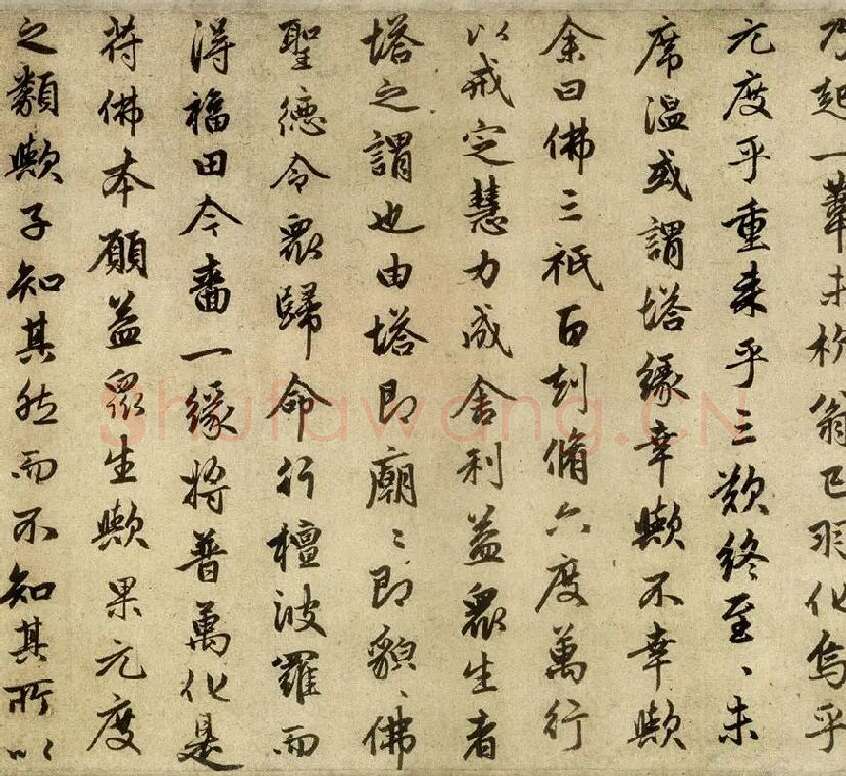 乃起一未翁已羽化烏乎
元度乎重来乎三歎終至〻未
席溫或謂塔緣幸歟不幸歟
余曰佛三祇百刧脩六度萬行
以戒定慧力成舍利益衆生者
塔之謂也由塔即廟〻即貌〻佛
聖德令衆歸命行檀波羅而
淂福田今嗇一緣將普萬化是
符佛本願益衆生歟果元度
之類歟子知其然而不知其所以
shufawang.CN